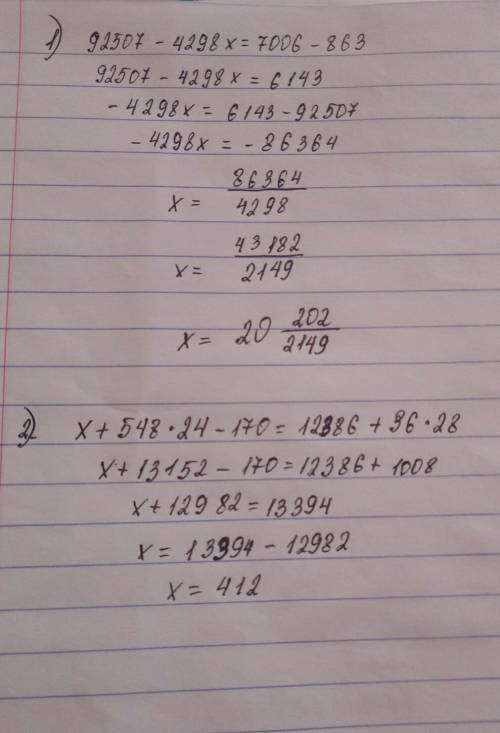 1) 92507 - 4298x = 7006 - 863
92507 - 4298x = 6143
- 4298x = 6143 - 92507
- 4298x = - 86364
x = 86364/4298
x = 43182/2149
x = 20 202/2149
2) x + 548 · 24 - 170 = 12386 + 36 · 28
x + 13152 - 170 = 12386 + 1008
x + 12982 = 13394
x = 13394 - 12982
x = 412